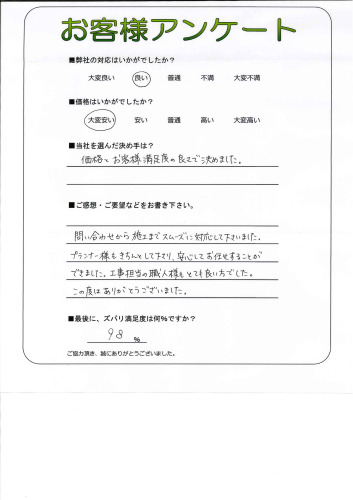 お客様アンケート
■弊社の対応はいかがでしたか?
大変良い 良い 普通 不満 大変不満
■価格はいかがでしたか?
大変安い 安い 普通 高い 大変高い
■当社を選んだ決め手は?
価格とお客様満足度の良さで決めました。
■ご感想・ご要望などをお書き下さい。
問い合わせから施工までスムーズに対応して下さいました。
プランナー様もきちんとして下さり、安心してお任せすることが
できました。工事担当の職人様もとても良い方でした。
この度はありがとうございました。
■最後に、ズバリ満足度は何%ですか?
98 %
ご協力頂き、誠にありがとうございました。